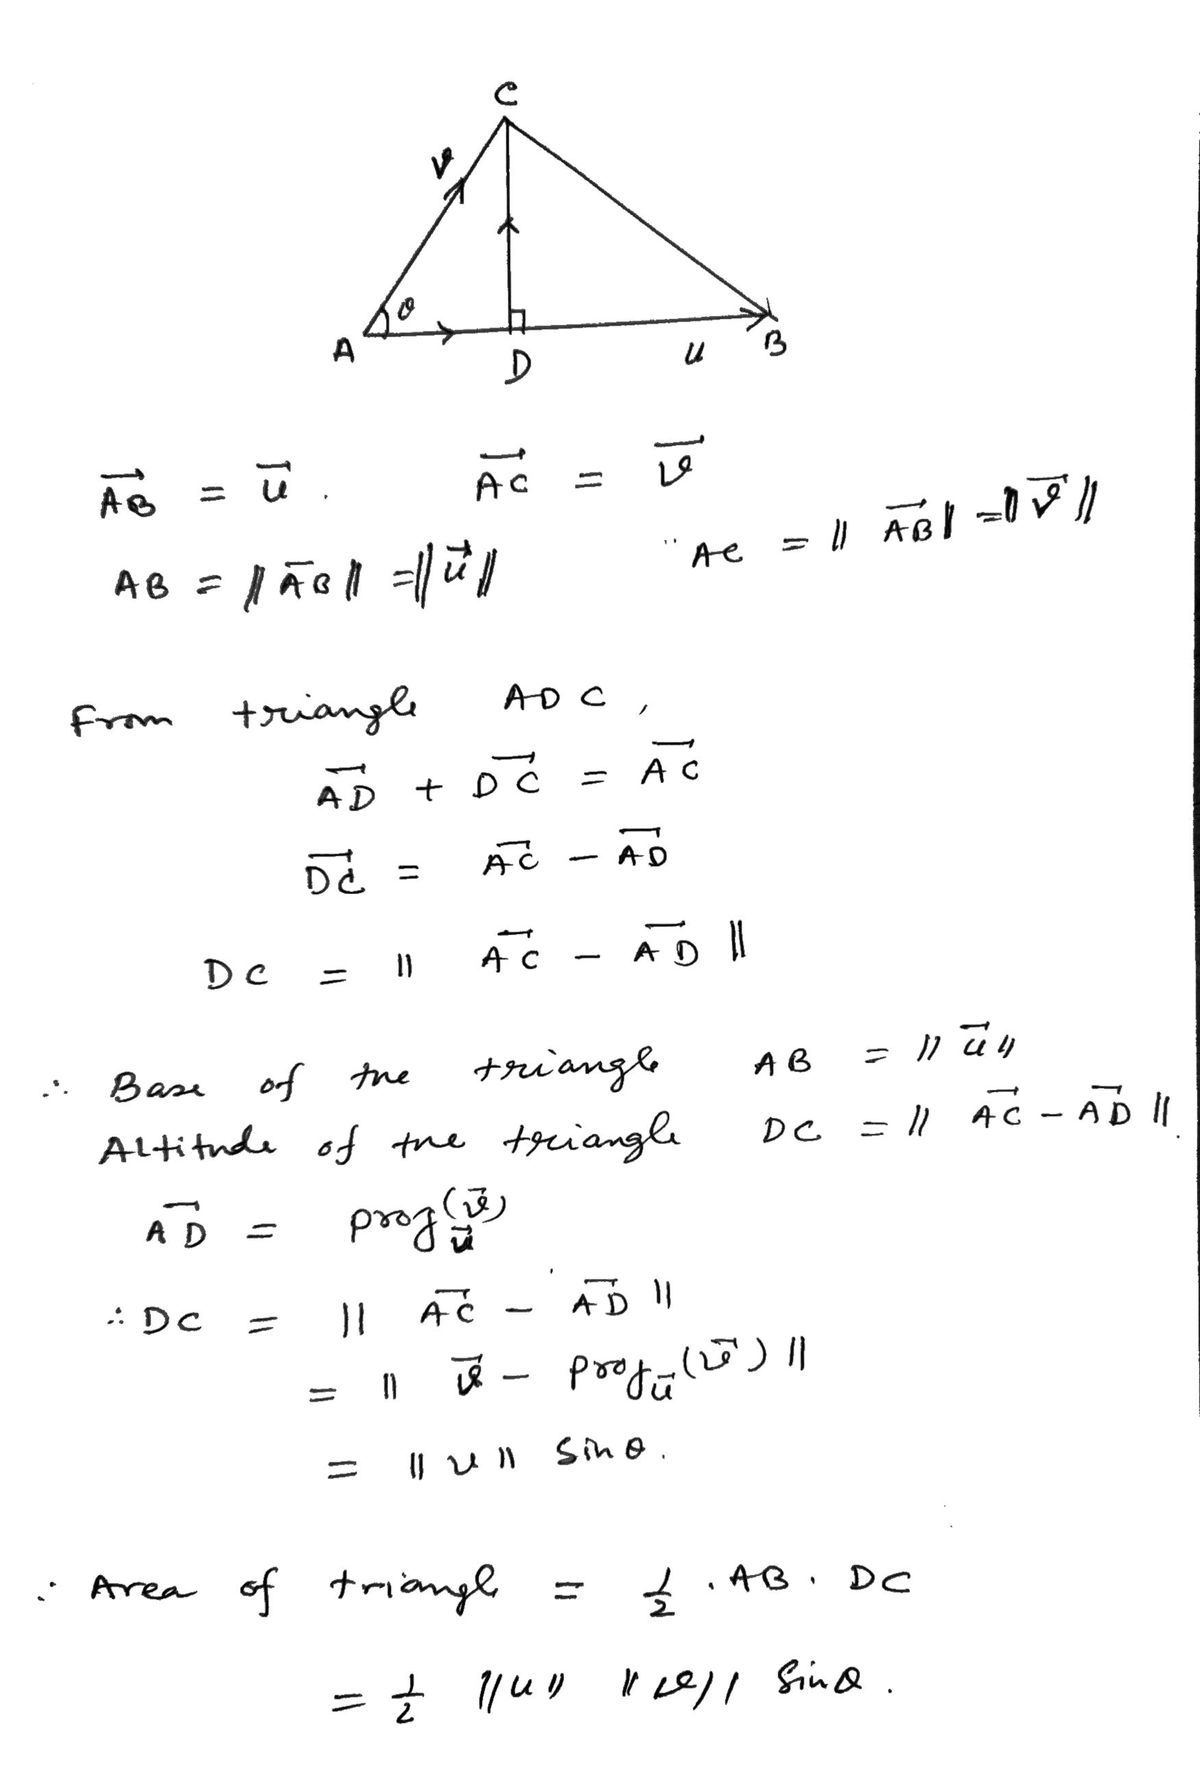 C
V
θ
A
D
u
B
$\overrightarrow{AB} = \vec{u}$. $\overrightarrow{AC} = \overrightarrow{v}$
$AB = \|\overline{AB}\| = \|\vec{u}\|$ " $AC = \|\overrightarrow{AB}\| = \|\overrightarrow{v}\|$
From triangle ADC,
$\overrightarrow{AD} + \overrightarrow{DC} = \overrightarrow{AC}$
$\overrightarrow{DC} = \overrightarrow{AC} - \overrightarrow{AD}$
$DC = \|\overrightarrow{AC} - \overrightarrow{AD}\|$
∴ Base of the triangle $AB = \|\vec{u}\|$
Altitude of the triangle $DC = \|\overrightarrow{AC} - \overrightarrow{AD}\|$.
$\overrightarrow{AD} = \text{proj}_{\vec{u}}(\vec{v})$
∴ $DC = \|\overrightarrow{AC} - \overrightarrow{AD}\|$
$= \|\vec{v} - \text{Proj}_{\vec{u}}(\vec{v})\|$
$= \|v\| \sin θ$.
∴ Area of triangle $= \frac{1}{2} . AB . DC$
$= \frac{1}{2} \|u\| \|v\| \sin θ$.